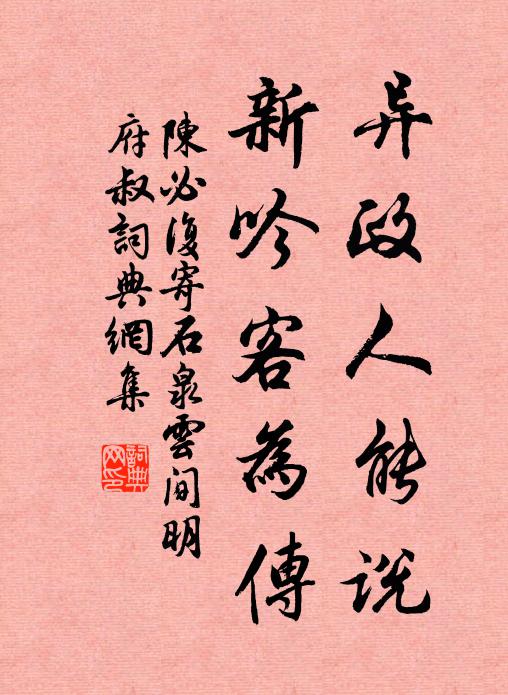 异政人能说
新吟客為傳
陳必復寄石泉雲间明
府叔詞典網集
詞典
网印